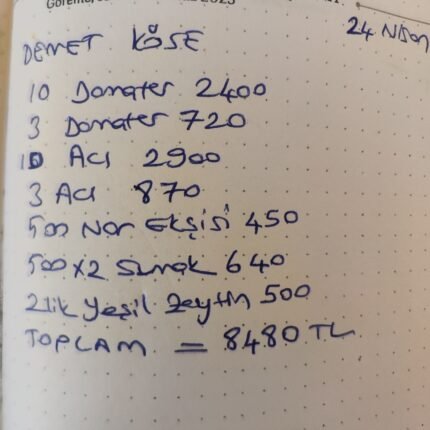 24 Nison
DEMET KÖSE
10 Domates 2400
3 Domates 720
10 Acı 2900
3 Acı 870
500 Nar Ekşisi 450
500x2 Sumak 640
2lik Yeşil Zeytin 500
TOPLAM = 8480 TL